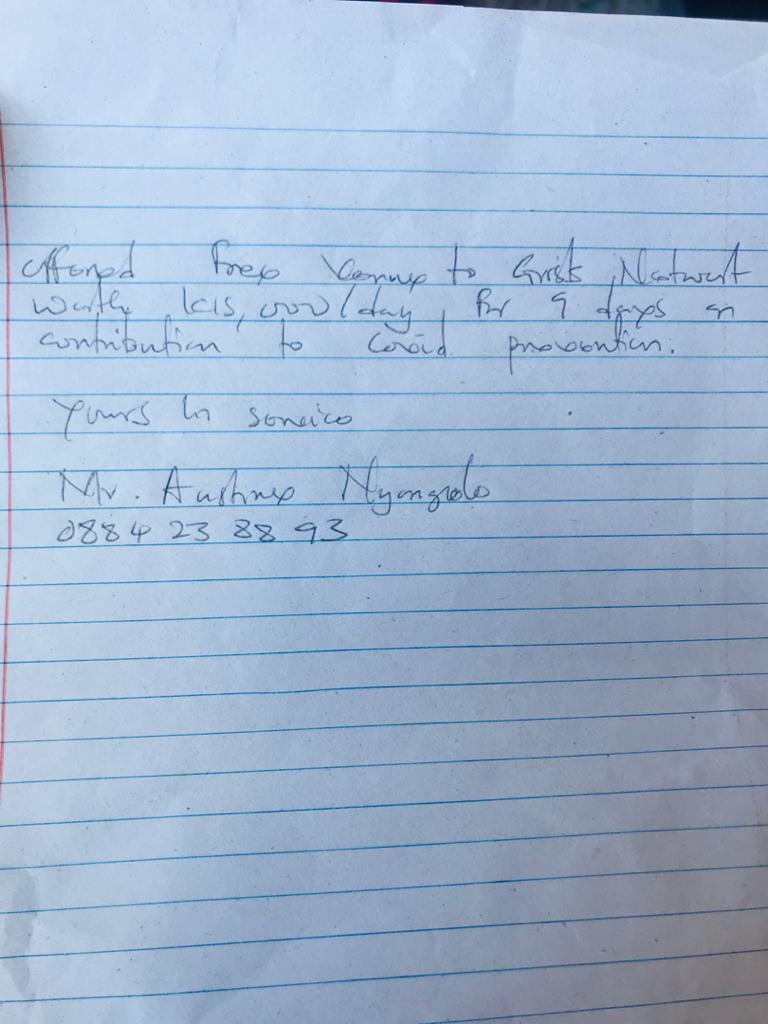 offered free Venue to Girls Network
worth K15,000/day, for 9 days in
contribution to Covid prevention.
Yours in service
Mr. Austine
0884 23 88 93